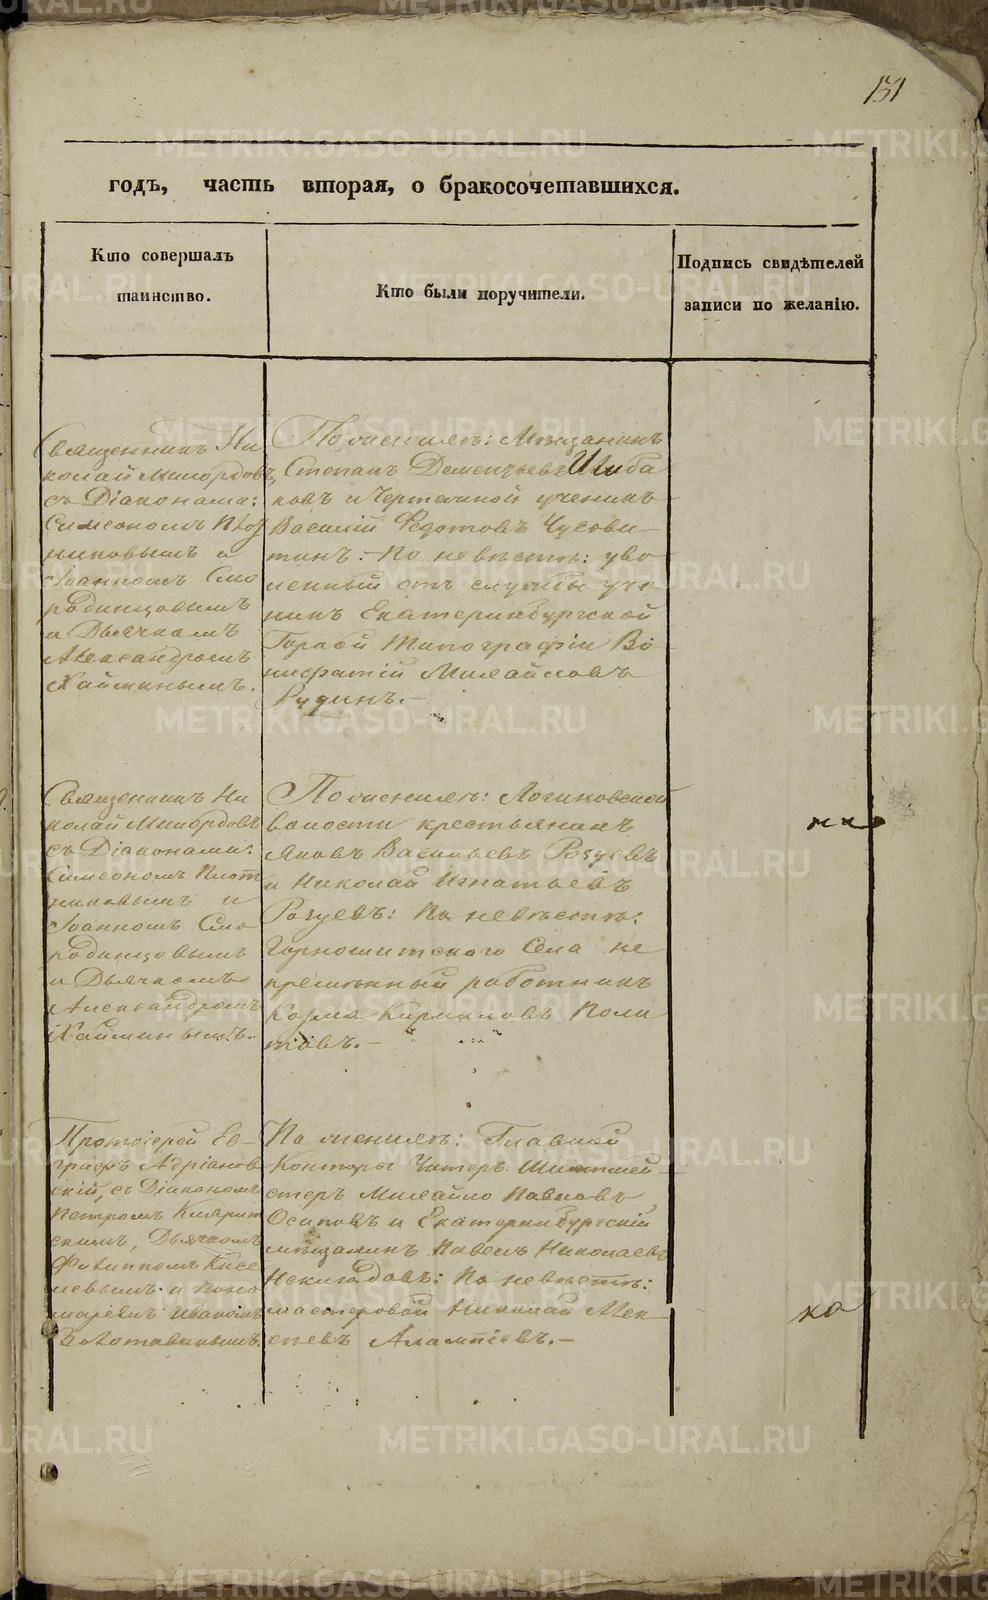 131
годъ, часть вторая, о бракосочетавшихся.
Кто совершалъ
таинство.
Кто были поручители.
Подпись свидѣтелей
записи по желанію.
Священникъ Ни
колай Милордовъ,
съ Діаконами:
Симеономъ Плот
никовымъ и
Іоанномъ Смо
родинцовымъ
и Дьячкомъ
Александромъ
Хайминымъ.
По женихѣ: Мѣщанинъ
Степанъ Дементьевъ Шиба
ковъ и Чертежной ученикъ
Василій Федотовъ Чусови
тинъ:- По невѣстѣ: уво
ленный отъ службы уче
никъ Екатеринбургской
Горной Типографіи Во
нифатій Михайловъ
Рудинъ.-
Священникъ Ни
колай Милордовъ
съ Діаконами:
Симеономъ Плот
никовымъ и
Іоанномъ Смо
родинцовымъ
и Дьячкомъ
Александромъ
Хайминымъ.
По женихѣ: Логиновской
волости крестьянинъ
Яковъ Васильевъ Розуевъ
и Николай Игнатьевъ
Розуевъ: По невѣстѣ:
Горнощитскаго Села не
премѣнный работникъ
Козма Кириловъ Поли
товъ.-
Протоіерей Ев-
графъ Адріанов
скій, съ Діакономъ
Петромъ
скимъ, Дьячкомъ
Филиппомъ Кисе
левымъ и Поно
маремъ Иваномъ
Золотавинымъ.
По женихѣ: Главной
Конторы Унтеръ Шихтмей
стеръ Михайло Павловъ
Осиповъ и Екатеринбургскій
мѣщанинъ Павелъ Николаевъ
Неклюдовъ: По невѣстѣ:
мастеровой Николай Алек
сѣевъ Алампіевъ.-
ка